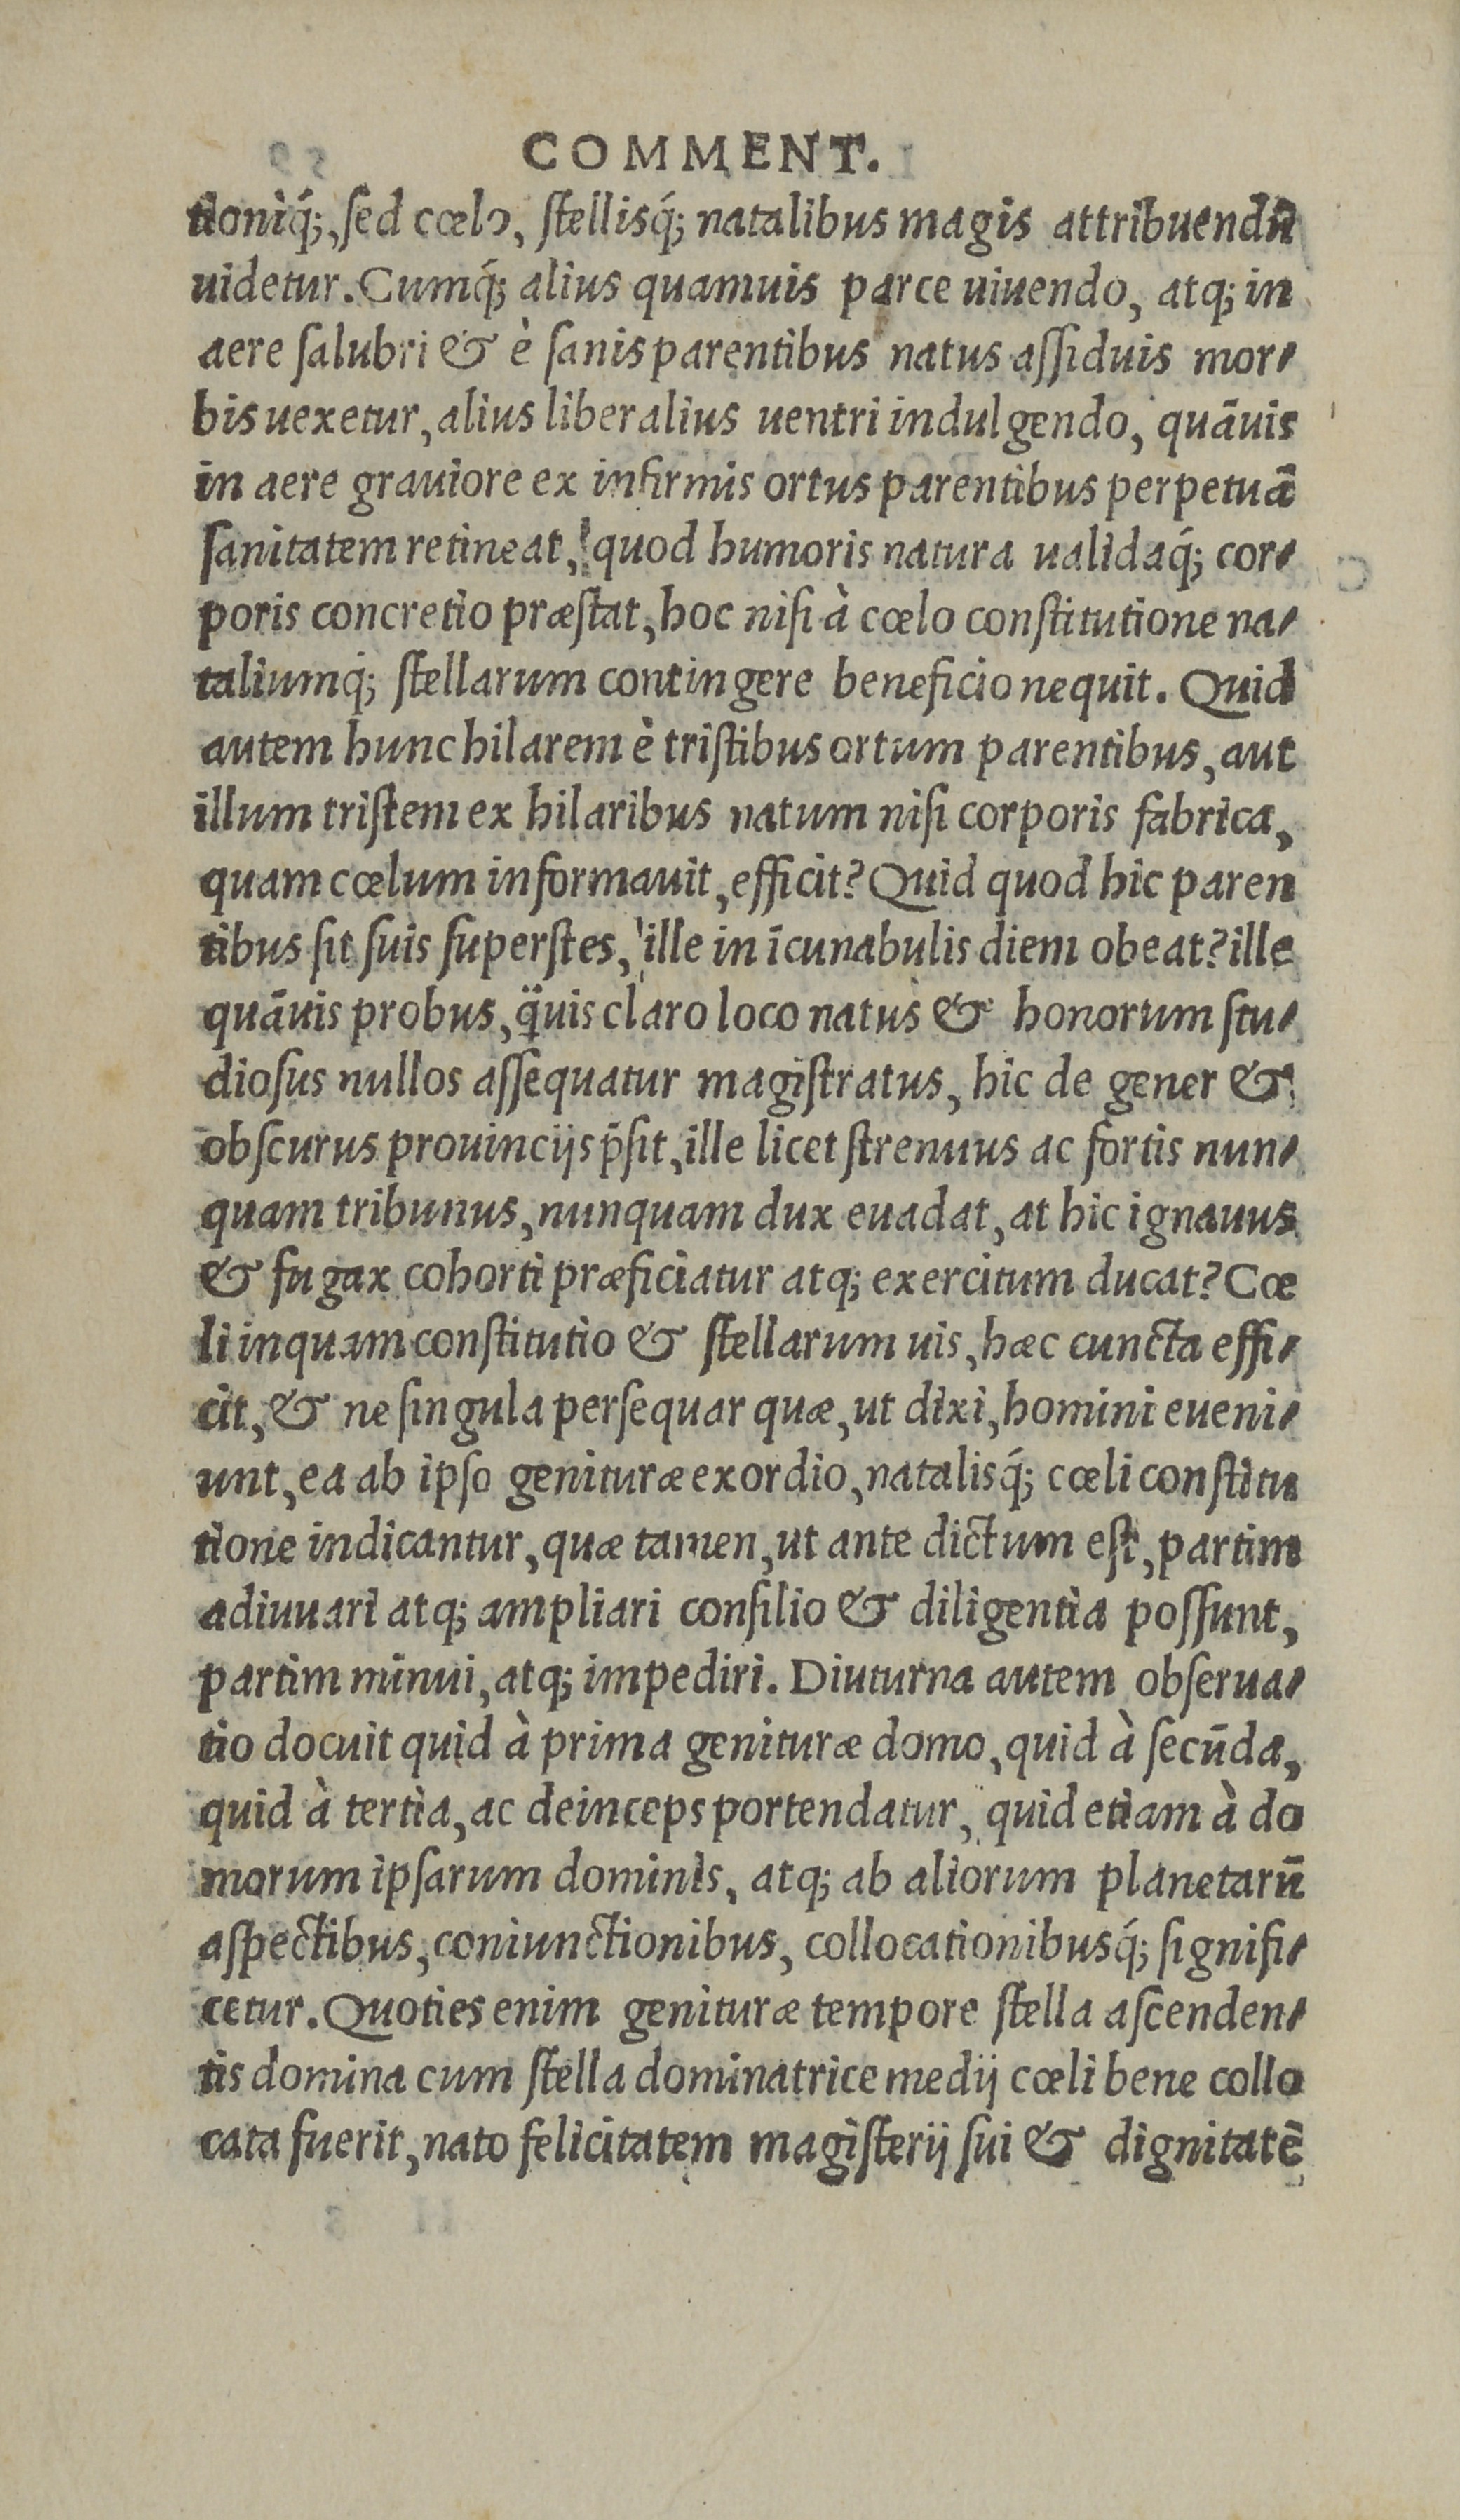 COMMENT.
tioniq́;, ſed cœlo, ſtellisq́; natalibus magis attribuendũ
uidetur. Cumq́; alius quamuis parce uiuendo, atq; in
aere ſalubri & è ſanis parentibus natus aſſiduis mor-
bis uexetur, alius liberalius uentri indulgendo, quãuis
in aere grauiore ex infirmis ortus parentibus perpetuã
ſanitatem retineat, quod humoris natura ualidaq́; cor-
poris concretio præſtat, hoc niſi à cœlo conſtitutione na-
taliumq́; ſtellarum contingere beneficio nequit. Quid
autem hunc hilarem è triſtibus ortum parentibus, aut
illum triſtem ex hilaribus natum niſi corporis fabrica,
quam cœlum informauit, efficit? Quid quod hic paren
tibus ſit ſuis ſuperſtes, ille in ĩcunabulis diem obeat? ille
quãuis probus, q̈uis claro loco natus & honorum ſtu-
dioſus nullos aſſequatur magiſtratus, hic de gener &
obſcurus prouincijs p̄ſit, ille licet ſtrenuus ac fortis nun-
quam tribunus, nunquam dux euadat, at hic ignauus
& fugax cohorti præficiatur atq; exercitum ducat? Cœ
li inquam conſtitutio & ſtellarum uis, hæc cuncta effi-
cit, & ne ſingula perſequar quæ, ut dixi, homini eueni-
unt, ea ab ipſo genituræ exordio, natalisq́; cœli conſtitu
tione indicantur, quæ tamen, ut ante dictum eſt, partim
adiuuari atq; ampliari conſilio & diligentia poſſunt,
partim minui, atq; impediri. Diuturna autem obſerua-
tio docuit quid à prima genituræ domo, quid à ſecũda,
quid à tertia, ac deinceps portendatur, quid etiam à do
morum ipſarum dominis, atq; ab aliorum planetarũ
aſpectibus, coniunctionibus, collocationibusq́; ſignifi-
cetur. Quoties enim genituræ tempore ſtella aſcenden-
tis domina cum ſtella dominatrice medij cœli bene collo
cata fuerit, nato felicitatem magiſterij ſui & dignitatẽ